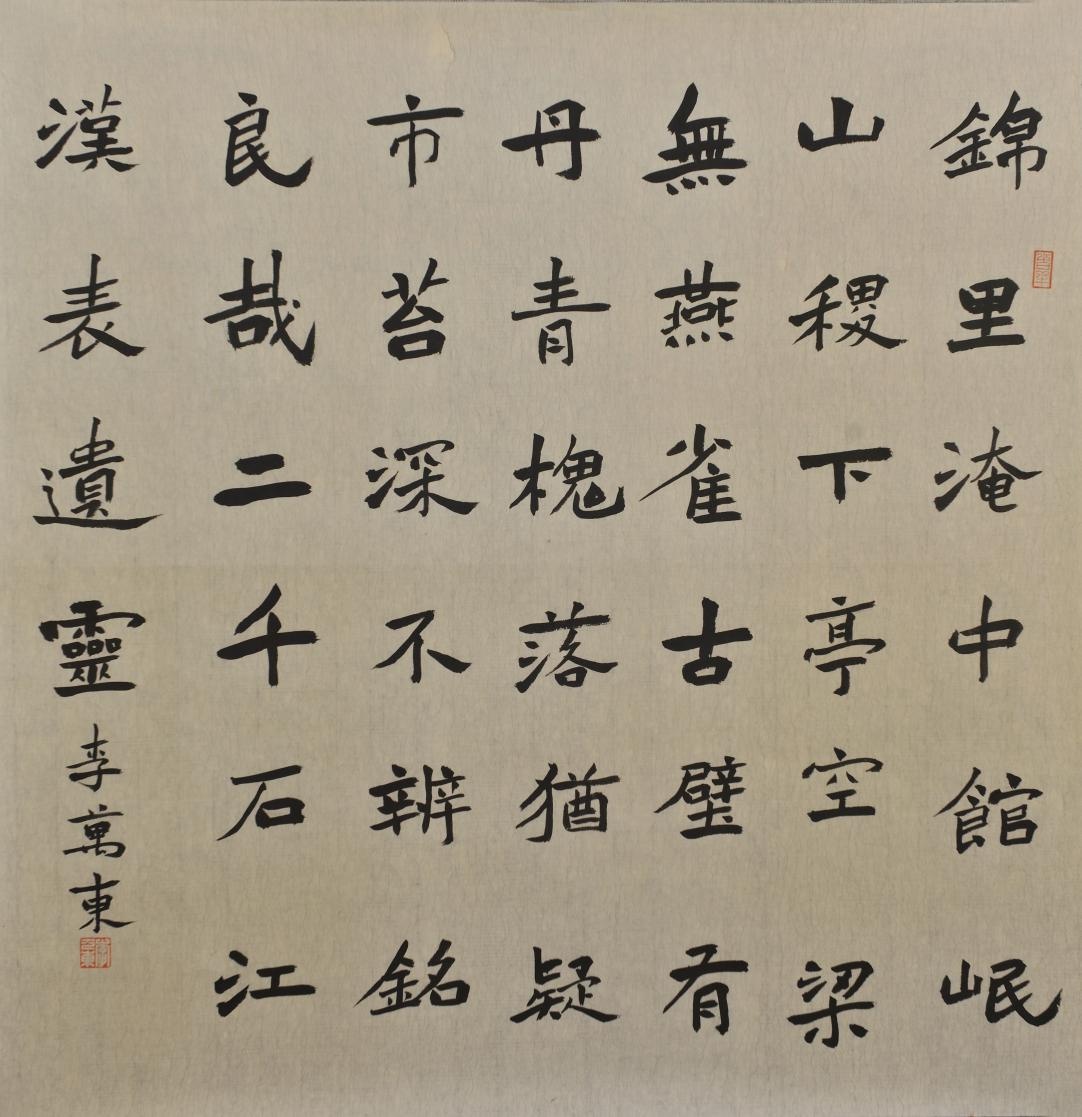 錦里淹中館岷
山稷下亭空梁
無燕雀古壁有
丹青槐落猶疑
市苔深不辨銘
良哉二千石江
漢表遺靈
李萬東